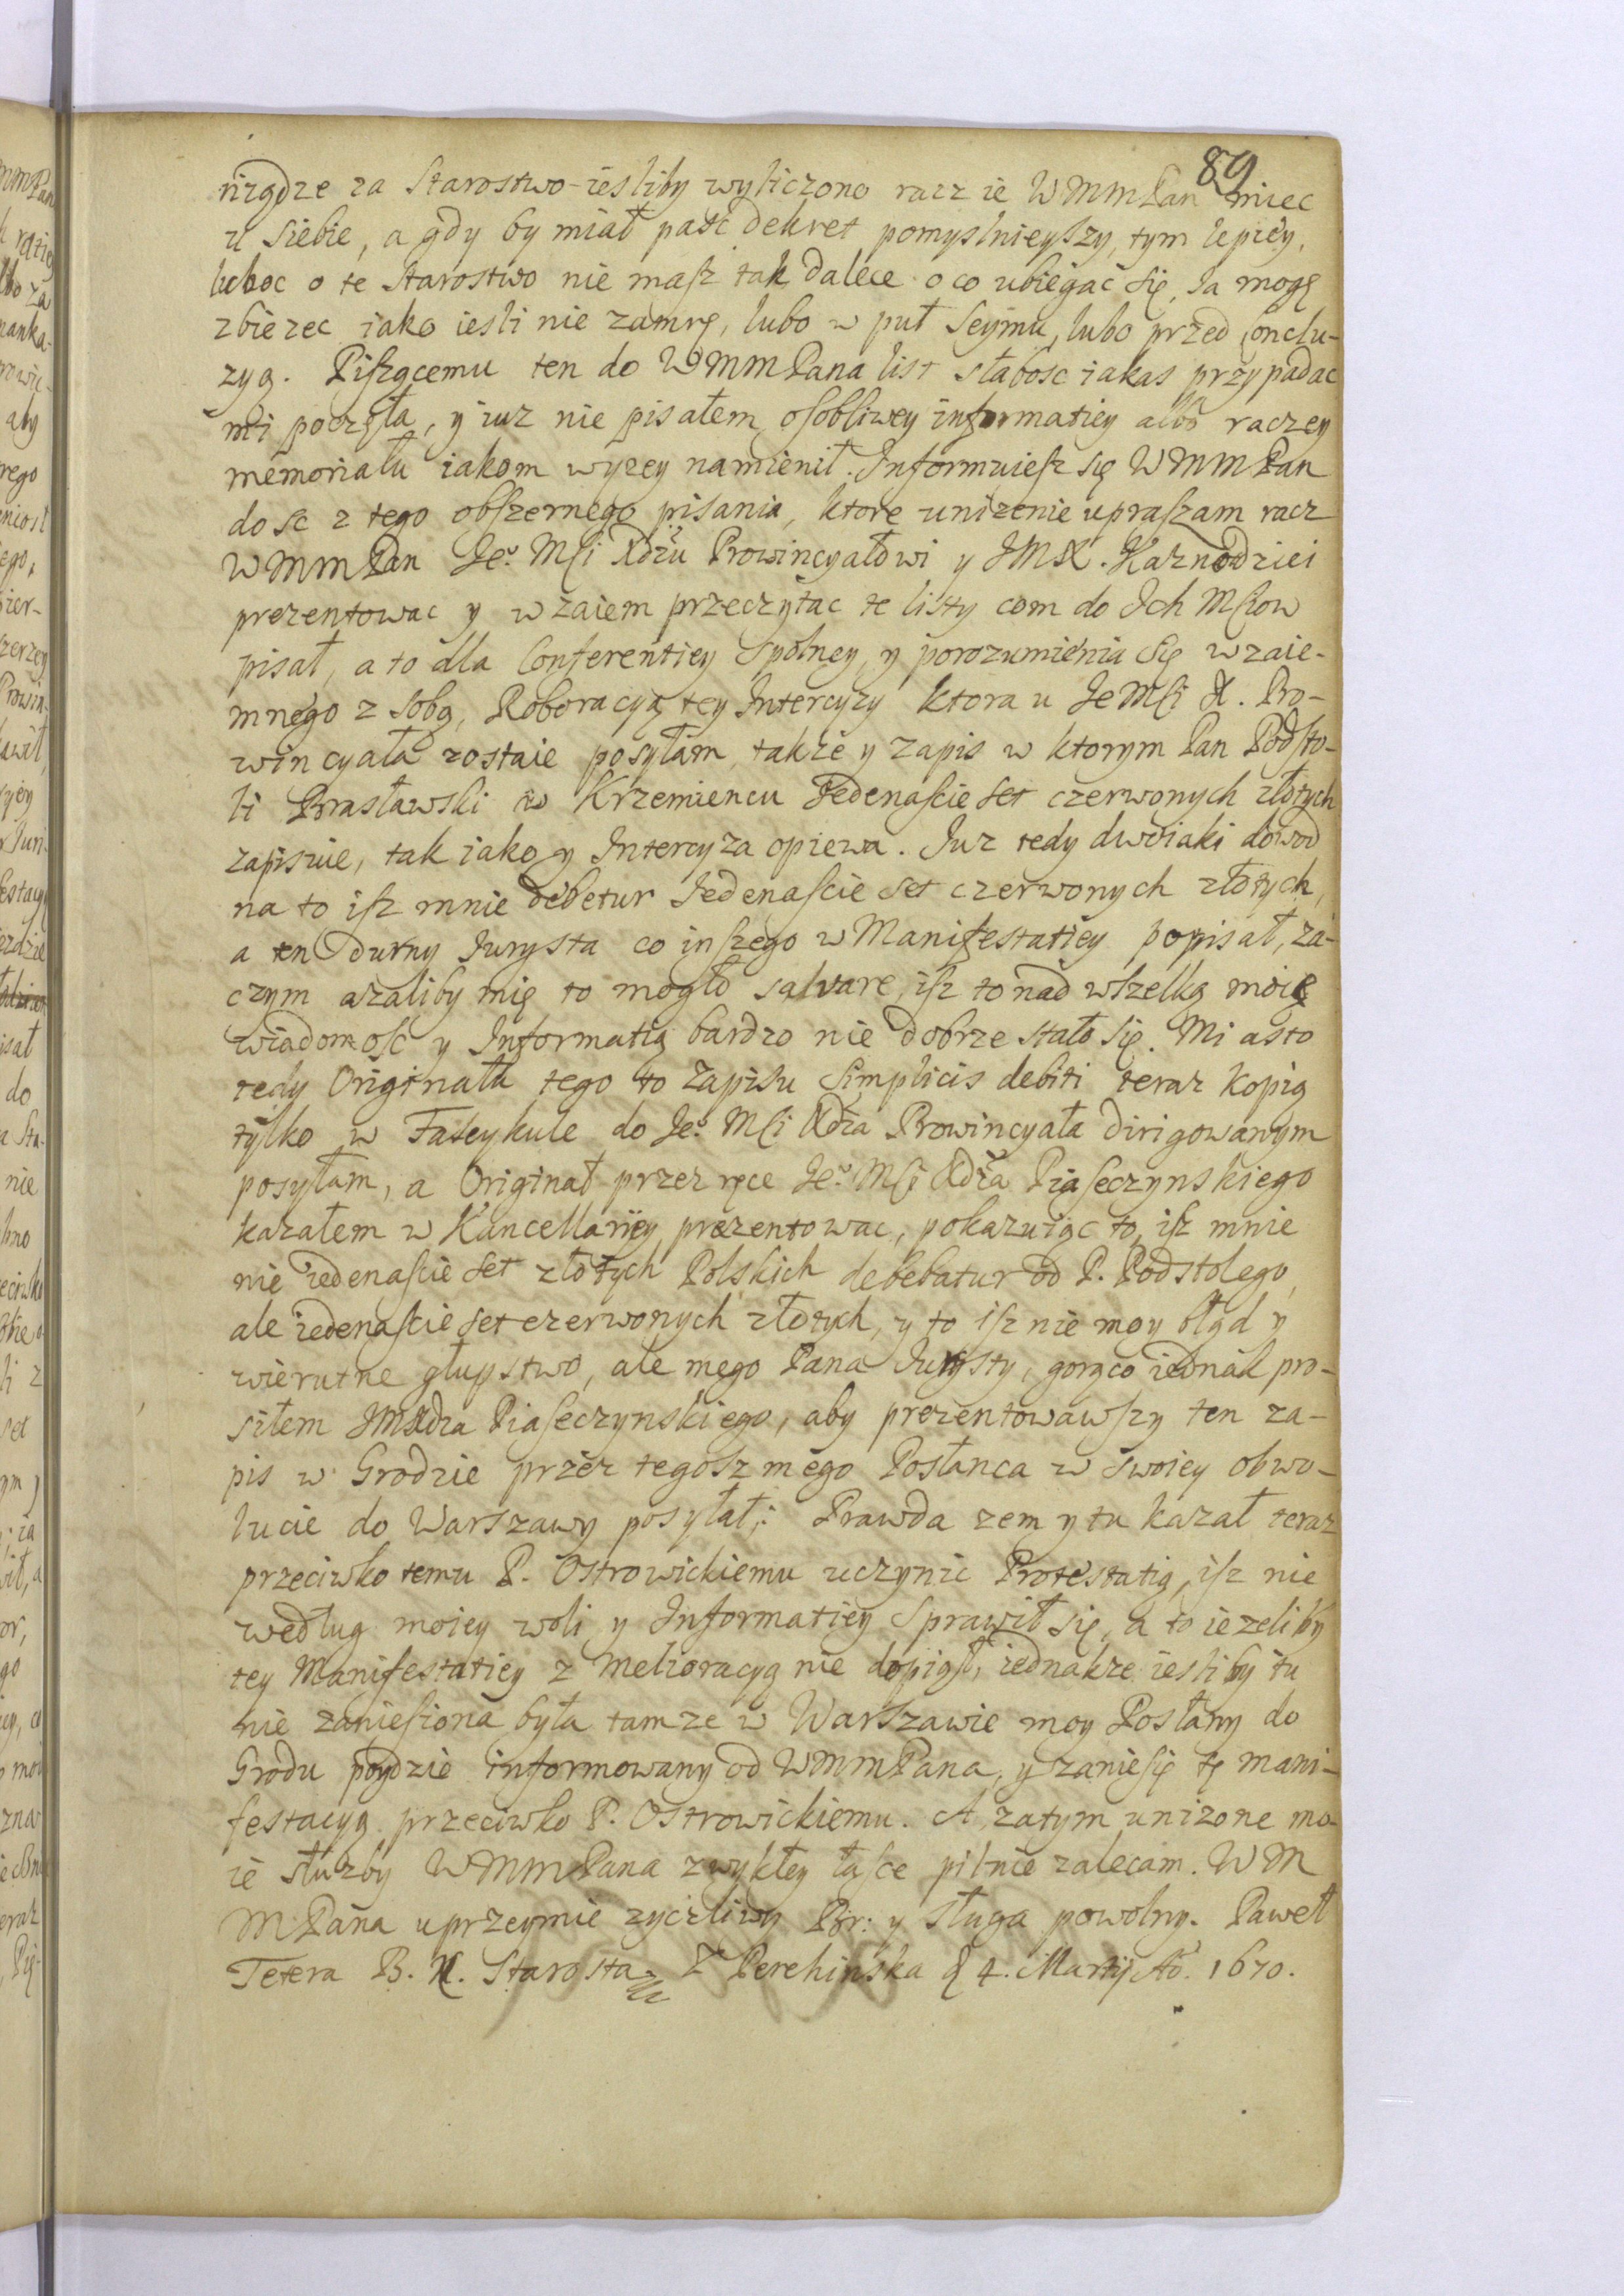 89
nigdze za Starostwo iesliby wyliczono racz ie WMMPan miec
u siebie, a gdy by miał paść dekret pomyslnieyszy, tym lepiey,
luboc o te Starostwo nie masz tak dalece o co ubiegać się, Ja mogę
zbiezec iako iesli nie zamrę, lubo w puł Seymu, lubo przed Conclu-
zyą. Piszącemu ten do WMMPana list słabosc iakas przypadac
mi poczęła, y iuz nie pisałem osobliwey informatiey albo raczey
memoriału iakom wyzey namienił. Informuiesz się WMMPan
dosc z tego obszernego pisania, ktore unizenie upraszam racz
WMMPan Jeº Mści Xdzu Prowincyałowi y JMX. Kaznodziei
prezentowac y wzaiem przeczytac te listy com do Ich Mściow
pisał, a to dla Conferentiey Spolney, y porozumienia się wzaie-
mnego z sobą, Roboracyą tey Intercyzy ktora u JeMści X. Pro-
wincyała zostaie posyłam, także y zapis w ktorym Pan Podsto-
li Brasławski w Krzemiencu Jedenascie set czerwonych złotych
zapisuie, tak iako y Intercyza opiewa. Juz tedy dwoiaki dowod
na to isz mnie debetur Jedenascie set czerwonych złotych,
a ten durny Jurysta co inszego w Manifestatiey popisał, za-
czym azaliby mię to mogło salvare, isz to nad wszelką moię
wiadomość y Informatią bardzo nie dobrze stało się. Miasto
tedy Originału tego to Zapisu Simplicis debiti teraz kopią
tylko w Fascykule do Jeº Mści Xdza Prowincyała dirigowanym
posyłam, a Originał przez ręce Jeº Mści Xdza Piaseczynskiego
kazałem w Kancellariey prezentowac, pokazuiąc to, isz mnie
nie iedenascie set złotych Polskich debebatur od P. Podstolego,
ale iedenascie set czerwonych złotych, y to isz nie moy błąd y
wierutne głupstwo, ale mego Pana Jurysty, gorąco iednak pro-
siłem JMXdza Piaseczynskiego, aby prezentowawszy ten za-
pis w Grodzie przez tegosz mego Posłanca w swoiey obwo-
lucie do Warszawy posyłał; Prawda zem y tu kazał teraz
przeciwko temu P. Ostrowickiemu uczynic Protestatią, isz nie
według moiey woli y Informatiey Sprawił się, a to iezeliby
tey Manifestatiey z melioracyą nie dopiął, iednakze iesliby tu
nie zaniesiona była tamze w Warszawie moy Posłany do
Grodu poydzie informowany od WMMPana, y zaniesię tę mani-
festacyą przeciwko P. Ostrowickiemu. A zatym unizone mo-
ie słuzby WMMPana zwykłey łasce pilnie zalecam. WM
MPana uprzeymie zyczliwy Br: y sługa powolny. Paweł
Tetera B. N. Starosta. Z Perehinska d 4. Martij Aº. 1670.